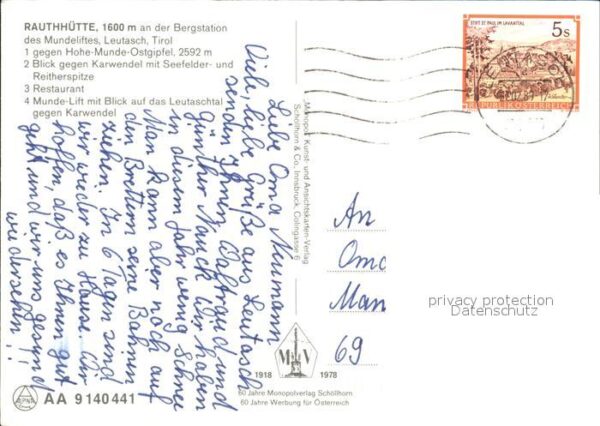 RAUTHHÜTTE, 1600 m an der Bergstation
des Mundeliftes, Leutasch, Tirol
1 gegen Hohe-Munde-Ostgipfel, 2592 m
2 Blick gegen Karwendel mit Seefelder- und
Reitherspitze
3 Restaurant
4 Munde-Lift mit Blick auf das Leutaschtal
gegen Karwendel
Liebe Oma Neumann
Viele, liebe Grüße aus Leutasch
senden Ihnen Waltraud und
Günther Mauck. Wir haben
in diesem Jahr wenig Schnee
Man kann aber noch auf
den Brettern seine Bahnen
ziehen. In 6 Tagen sind
wir wieder zu Hause. Wir
hoffen, daß es Ihnen gut
geht und wir uns gesund
wiedersehen!!
Monopol Kunst- und Ansichtskarten-Verlag
Schöllhorn & Co., Innsbruck, Colingasse 6
STIFT ST. PAUL IM LAVANTTAL
5 S
REPUBLIK ÖSTERREICH
An
Oma
Man
69
privacy protection
Datenschutz
M V
1918 1978
60 Jahre Monopolverlag Schöllhorn
60 Jahre Werbung für Österreich
ALPINA
AA 9140441